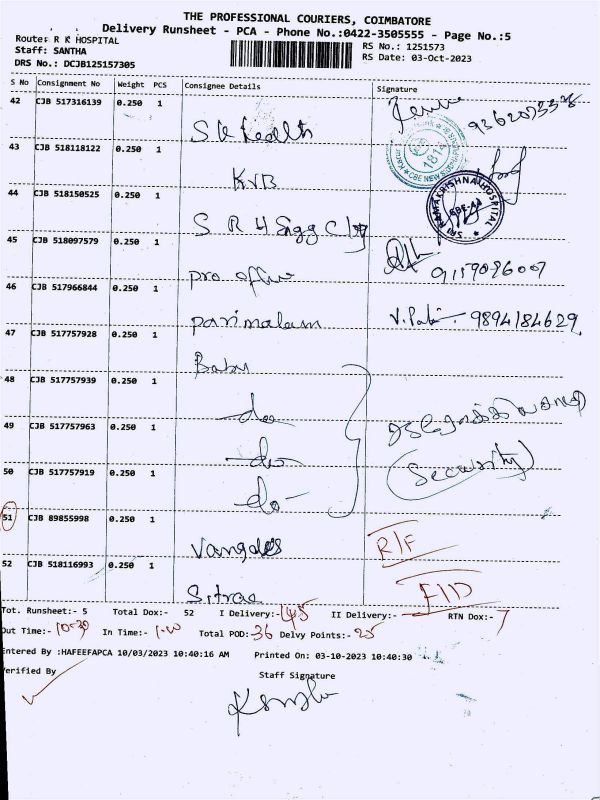 THE PROFESSIONAL COURIERS, COIMBATORE
Delivery Runsheet - PCA - Phone No.:0422-3505555 - Page No.:5
Route: R K HOSPITAL
RS No.: 1251573
Staff: SANTHA
RS Date: 03-Oct-2023
DRS No.: DCJB125157305
S No Consignment No Weight PCS Consignee Details Signature
42 CJB 517316139 0.250 1
S K Health
43 CJB 518118122 0.250 1
1814
KVB
44 CJB 518150525 0.250 1
SRI RAMAKRISHNA HOSPITAL
CBE-44
S R H Engg Clg
45 CJB 518097579 0.250 1
pro office 9159096007
46 CJB 517966844 0.250 1
parimalam 9894184629
47 CJB 517757928 0.250 1
Babu
48 CJB 517757939 0.250 1
do
49 CJB 517757963 0.250 1
do (Security)
50 CJB 517757919 0.250 1
do
51 CJB 89855998 0.250 1
R/F
52 CJB 518116993 0.250 1
Sitraa
Tot. Runsheet:- 5 Total Dox:- 52 I Delivery:- 45 II Delivery:- RTN Dox:- 7
Out Time:- 10-30 In Time:- 1-00 Total POD:- 36 Delvy Points:- 25
Entered By :HAFEEFAPCA 10/03/2023 10:40:16 AM Printed On: 03-10-2023 10:40:30
Verified By Staff Signature